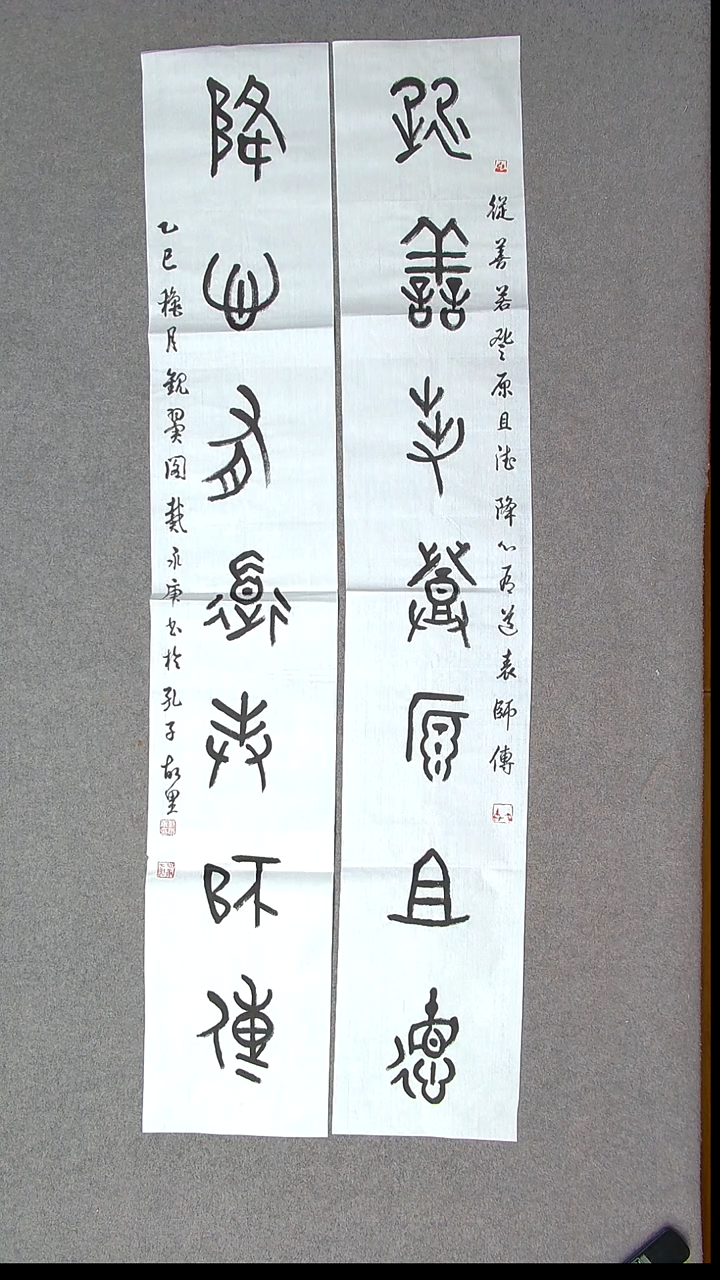 從善若登原且德降心有道表師傳
從善若登原且德
降心有道表師傳
乙巳月觀翼閣戴永庚书於孔子故里